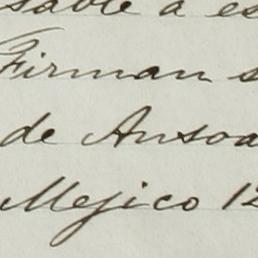 sable a es
Firman s
de Ansoa
Mejico 12